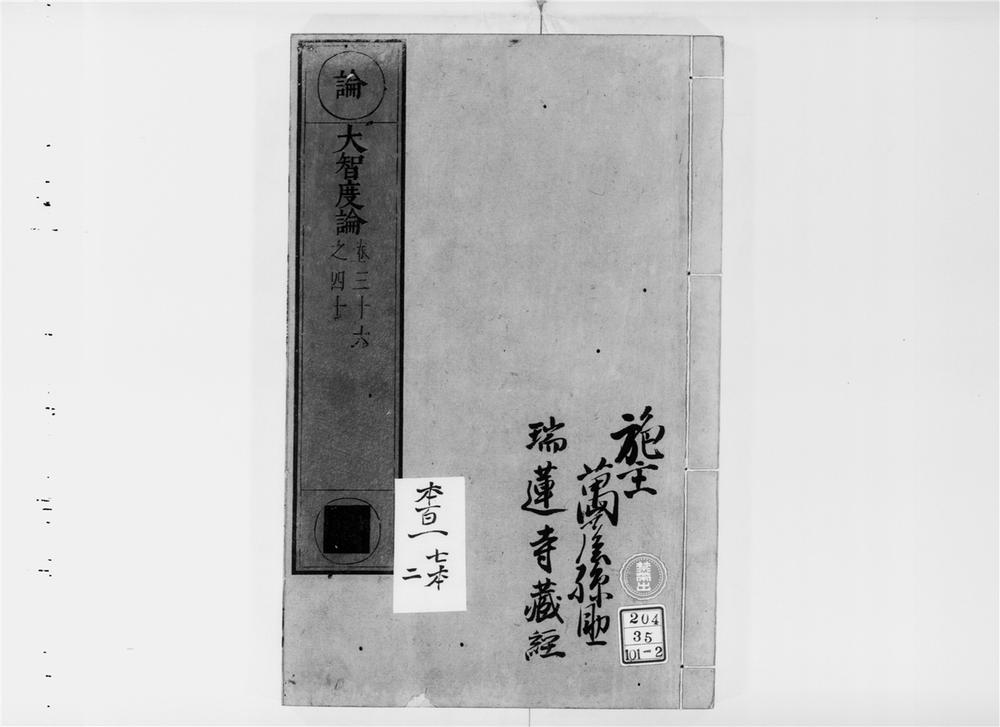 論
大智度論
卷三十六
之四十
施主
萬屋孫助
瑞蓮寺藏經
本百一
七本
二
禁帶出
204
35
101-2